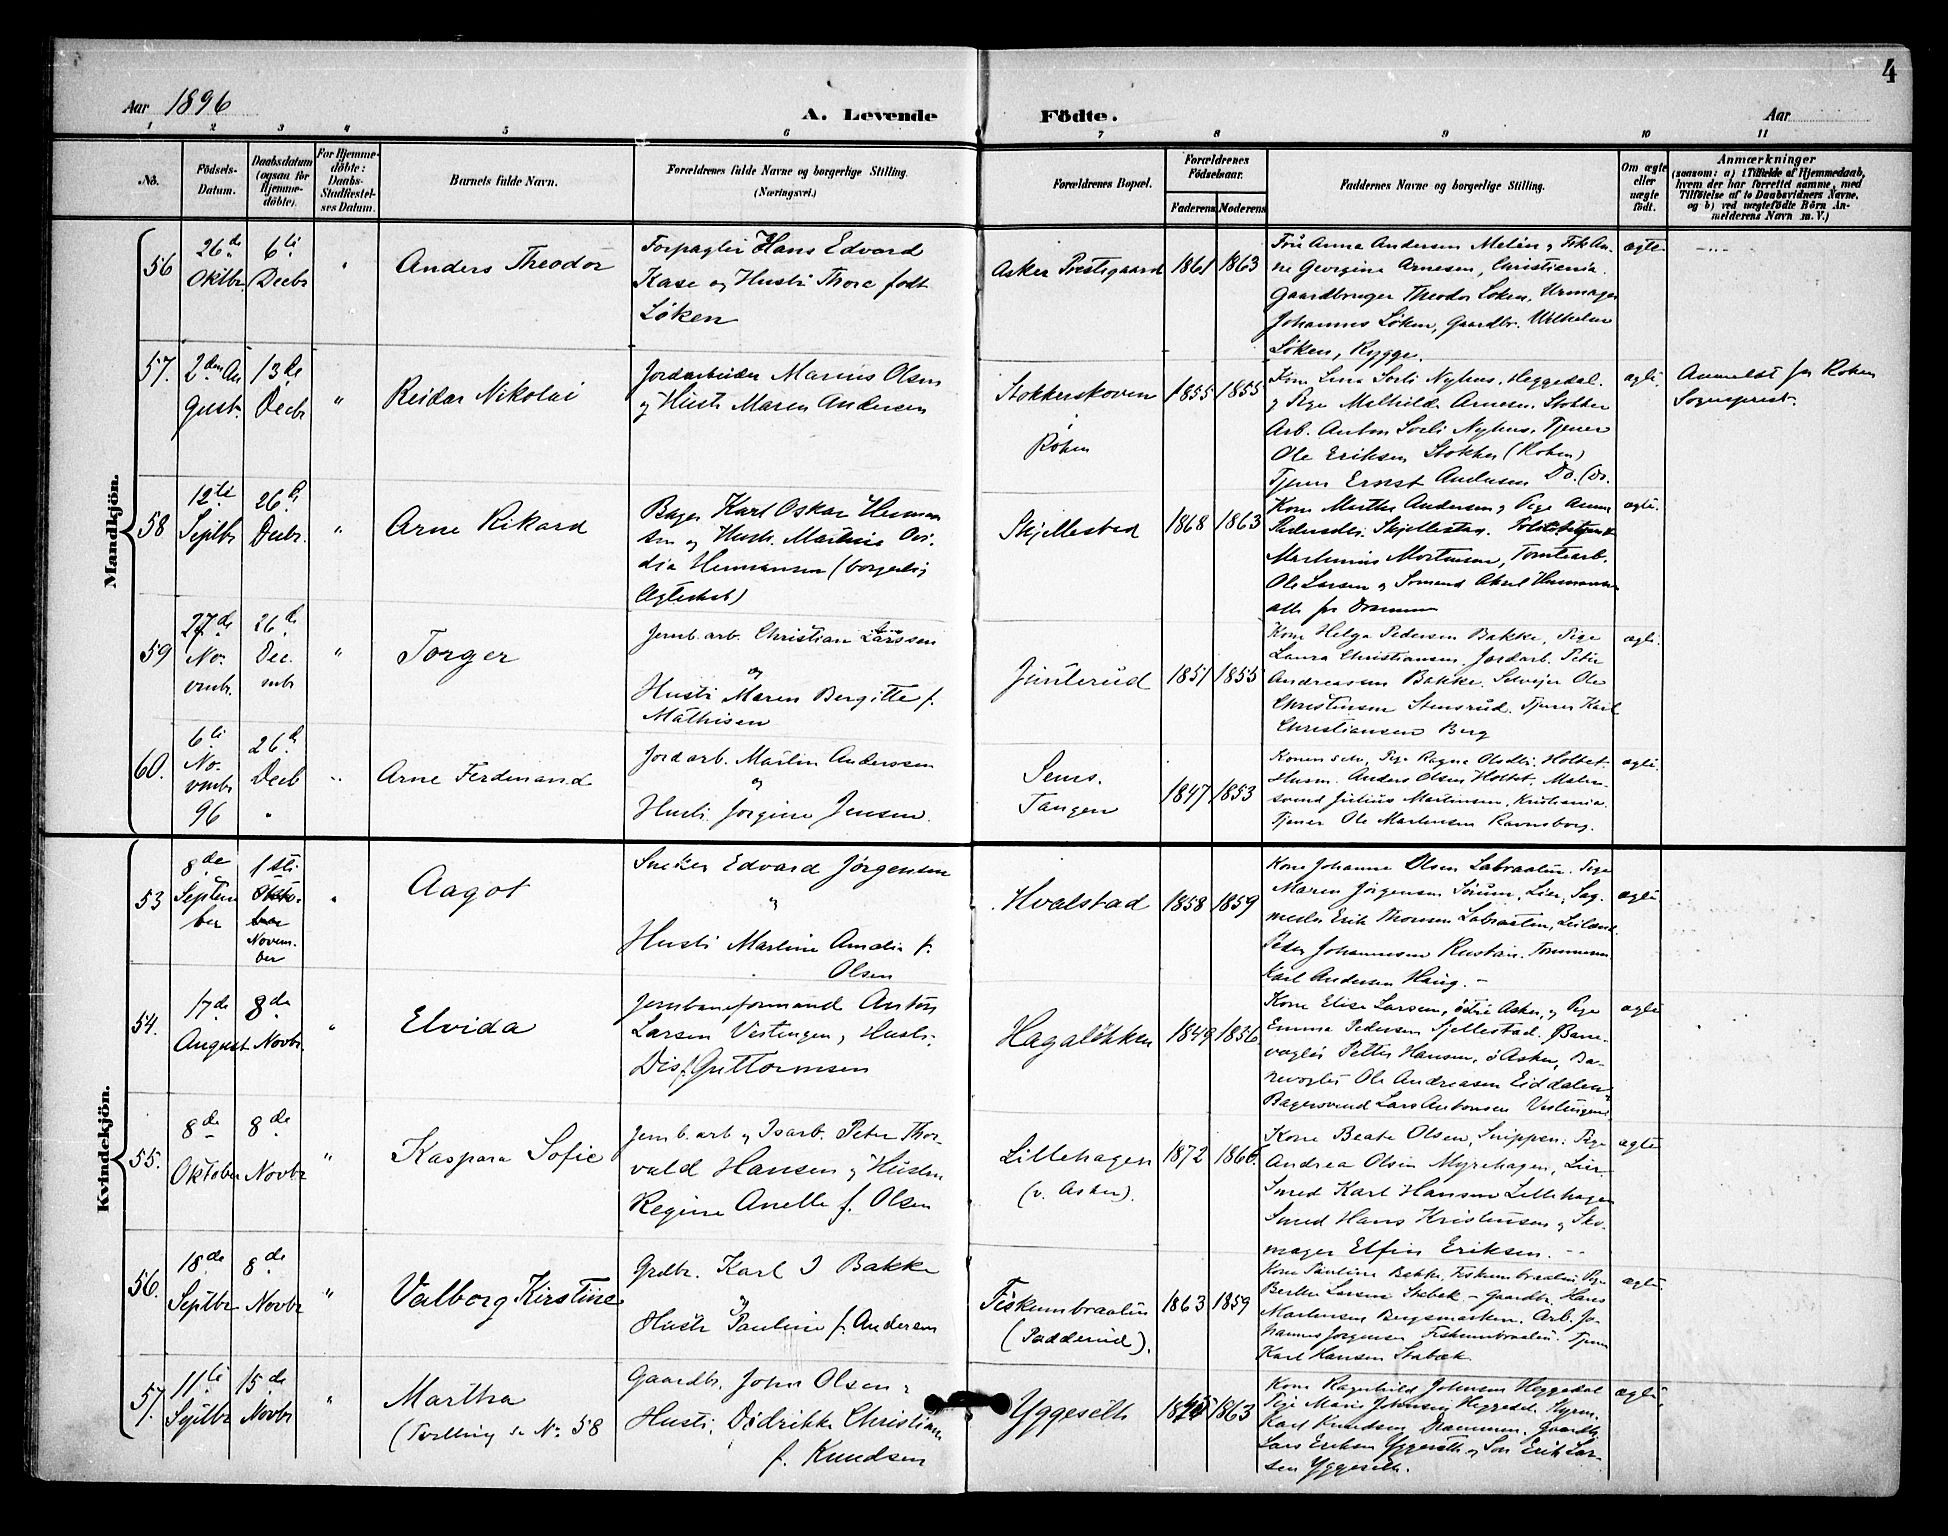 4
Aar 1896
A. Levende Födte.
Aar
1 2 3 4 5 6 7 8 9 10 11
No.
Födsels-Datum.
Daabsdatum (ogsaa for Hjemme-döbte).
For Hjemme-döbte: Daabs-Stadfæstel-ses Datum.
Barnets fulde Navn.
Forældrenes fulde Navne og borgerlige Stilling.
(Næringsvei.)
Forældrenes Bopæl.
Forældrenes Födselsaar.
Faderens
Moderens
Faddernes Navne og borgerlige Stilling.
Om ægte eller uægte födt.
Anmærkninger
(saasom: a) i Tilfælde af Hjemmedaab, hvem der har forrettet samme, med Tilföielse af to Daabsvidners Navne, og b) ved uægtefödte Börn An-melderens Navn m. V.)
Mandkjön.
56
26de Oktbr.
6te Decbr
"
Anders Theodor
Forpagter Hans Edvard
Kase og Hustr. Thora født
Løken
Asker Prestegaard
1861
1863
Frü Anna Andersen Melen og Frk An-
ne Georgina Arnesen, Christiania.
Gaardbruger Theodor Løken, Urmager
Johannes Løken, Gaardbr. Wilhelm
Løken, Rygge.
ægte
57.
2den August.
13de Decbr
"
Reidar Nikolai
Jordarbeider Marius Olsen
og Hustr. Maren Andersen
Stokkerskoven
i
Røken
1855
1855
Kone Lina Sorli Nyhus, Heggedal.
og Pige Mathilde Arnesen. Stokker
Arb. Anton Sorli Nyhus. Tjener
Ole Eriksen Stokker (Røken)
Tjener Ernst Andersen Do. (Do.
ægte.
Anmeldt for Røken
Sogneprest.
58
12te Septbr
26de Decbr.
"
Arne Rikard
Bager Karl Oskar Herman
sen og Hustr. Martine Ovi-
dia Hermansen (borgerlig
Ægteskab)
Skjellestad
1868
1863
Kone Marthe Andersen og Pige Anna
Pedersdtr. Skjellestad.
Martinius Mortensen, Tomtearb.
Ole Larsen og Sømand Aksel Hermansen
alle fra Drammen
ægte.
59
27de Novembr.
26de Decembr
"
Torger
Jernb. arb. Christian Larssen
og
Hustr. Maren Bergitte f.
Mathisen
Jünterud
1851
1855
Kone Helga Pedersen Bakke, Pige
Laura Christiansen. Jordarb. Peter
Andreasen Bakke. Selveier Ole
Christensen Stensrud. Tjener Karl
Christiansen Berg
ægte.
60.
6te Novembr 96
26de Decb
"
Arne Ferdinand
Jordarb. Martin Anderssen
og
Hustr. Jorgine Jensen.
Sems.
Tangen
1847
1853
Konen selv, Pige Ragna Olsdtr. Holtet.
Husm. Anders Olsen Holtet, Maler
svend Julius Martinsen, Kristiania.
Tjener Ole Martensen Ravnsborg.
ægte.
Kvindekjön.
53
8de September
1ste November
"
Aagot
Snekker Edvard Jørgensen
"
Hustr. Martine Amalie f.
Olsen
Hvalstad
1858
1859
Kone Johanne Olsen Labraaten. Pige
Maren Jørgensen Sørum, Lier, Sag-
mester Erik Thomsen Labraaten, Leiland.
Peder Johannesen Rustan. Tømmermn
Karl Andersen Haug. -
ægte
54.
17de August
8de Novbr.
"
Elvida
Jernbaneformand Anton
Larsen Vestengen, Hustr.
Dis f. Guttormsen
Hagaløkken
1849
1856.
Kone Elise Larsen, østre Asker, og Pige
Emma Pedersen Sjellestad. Bane-
vogter Petter Hansen, ø Asker, Ba-
nevogter Ole Andreasen Eiddalen
Bagersvend Lars Antonsen Vestengen
ægte
55.
8de Oktober
8de Novbr
"
Kaspara Sofie
Jernb. arb og Isarb. Peter Thor-
vald Hansen og Hustru
Regine Anette f. Olsen
Lillehagen
(v. Asker).
1872
1866.
Kone Beate Olsen, Snippen. Pige
Andrea Olsen Myrehagen, Lier-
Smed Karl Hansen Lillehagen
Smed Hans Kristensen og Sko-
mager Elfin Eriksen. -
ægte
56.
18de Septbr
8de Novbr
"
Valborg Kirstine
Grdbr. Karl J Bakke
og
Hustr Pauline f. Andersen
Fiskumbraaten
(Padderud).
1863
1859
Kone Pauline Bakke, Fiskumbraaten. Pige
Berthe Larsen Stabek - Gaardbr. Hans
Martinsen Bergsmarken. Arb. Jo-
hannes Jørgensen Fiskumbraaten. Tjener
Karl Hansen Stabæk
ægte.
57.
11te Septbr
15de Novbr
"
Martha
(Tvilling se No 58
Gaardbr. John Olsen og
Hustr. Didrikke Christiane
f. Knudsen
Yggeseth
1863
Kone Ragnhild Johnsen Heggedal
Pige Marie Johnsen Heggedal. Styrm.
Karl Knudsen Drammen. Gaardbr
Lars Eriksen Yggeseth og Søn Erik Lar-
sen Yggeseth.
ægte.